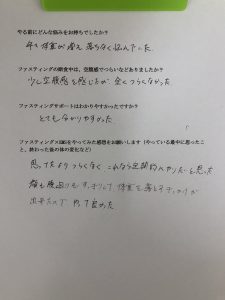 やる前にどんな悩みをお持ちでしたか？
年々体重が増え落ちなく悩んでいた
ファスティングの断食中は、空腹感でつらいなどありましたか？
少し空腹感を感じたが、全くつらくなかった
ファスティングサポートはわかりやすかったですか？
とても分かりやすかった
ファスティングをやってみた感想をお願いします（やっている最中に思ったこと、終わった後の体の変化など）
思ってたよりつらくなく これなら定期的にやりたいと思った
顔も腰回りもすっきりして 体重を落とすきっかけが
出来たので やって良かった